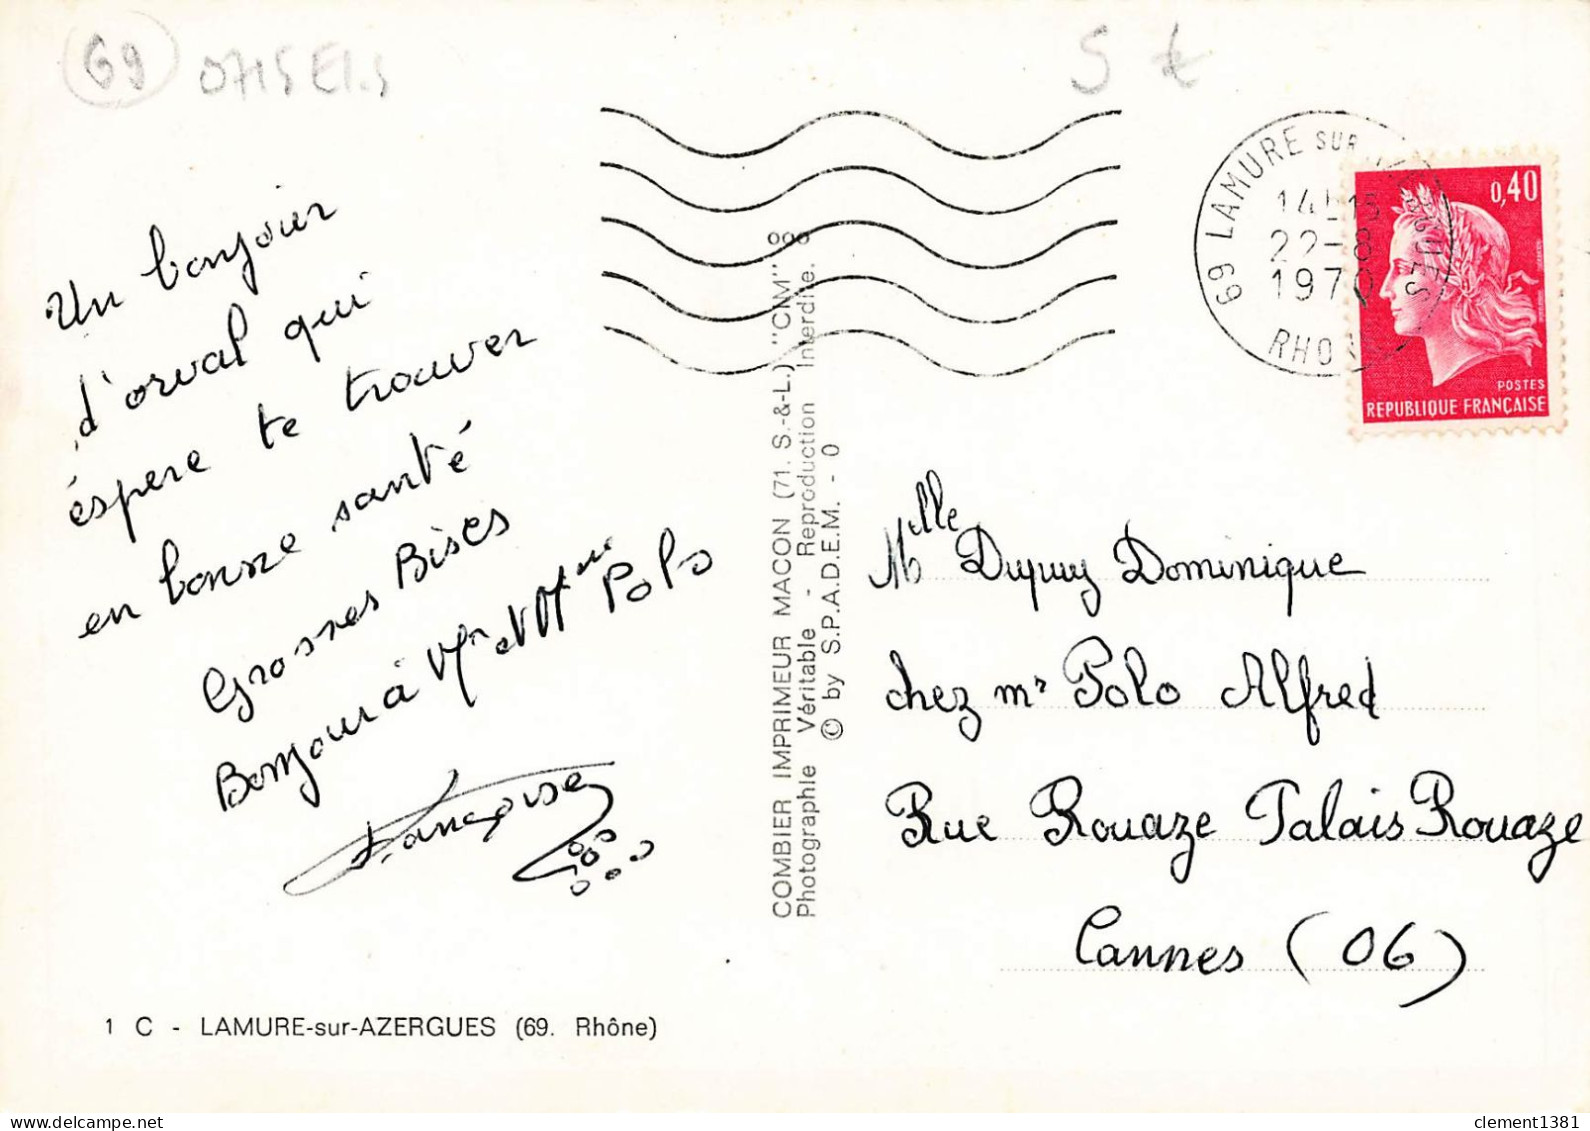 69
S
Un bonjour
d'orval qui
éspere te trouver
en bonne santé
Grosses Bises
Bonjour à Mr et Mme Polo
Françoise
1 C - LAMURE-sur-AZERGUES (69. Rhône)
COMBIER IMPRIMEUR MACON (71. S.-&-L.) "CIM"
Photographie Véritable - Reproduction Interdite.
© by S.P.A.D.E.M. - 0
69 LAMURE SUR AZERGUES
14H15
22-8
1970
RHONE
0,40
POSTES
REPUBLIQUE FRANÇAISE
Mlle Dupuy Dominique
chez mr Polo Alfred
Rue Rouaze Palais Rouaze
Cannes (06)
clement1381